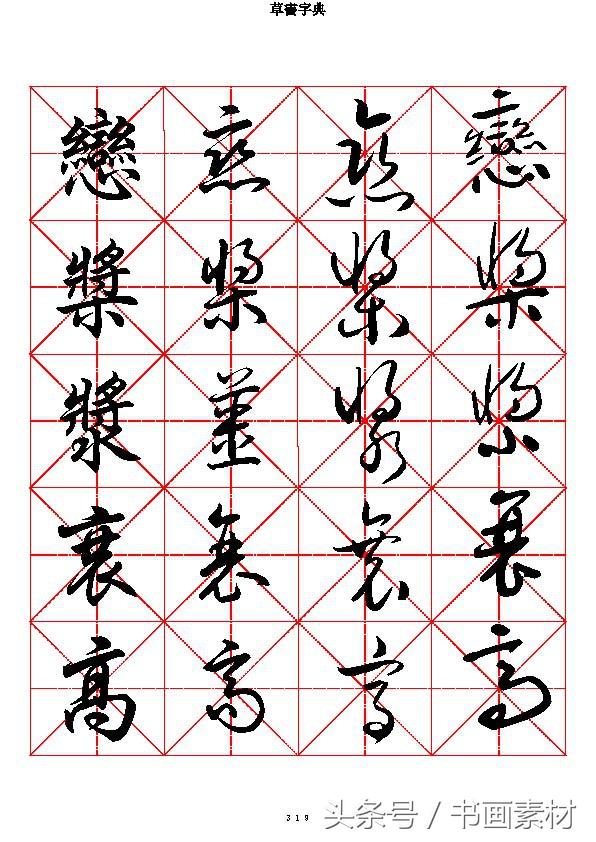 草書字典
戀 戀 戀 戀
槳 槳 槳 槳
漿 薑 漿 漿
衰 衰 衰 衰
高 高 高 高
319
头条号 / 书画素材